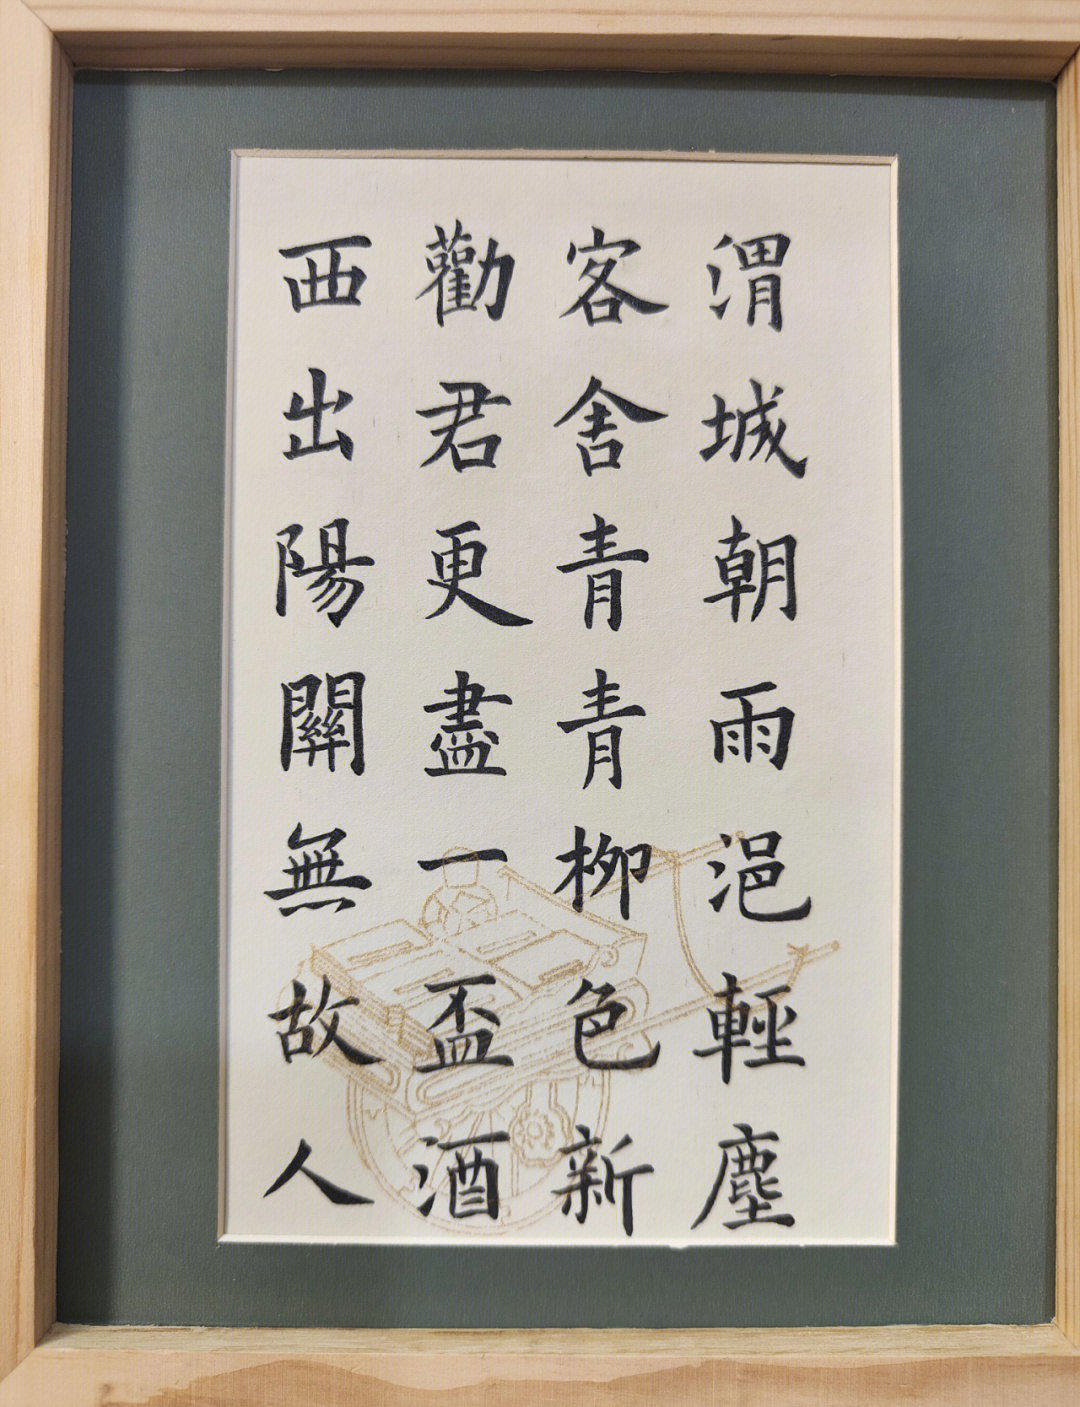 渭城朝雨浥輕塵
客舍青青柳色新
勸君更盡一盃酒
西出陽關無故人